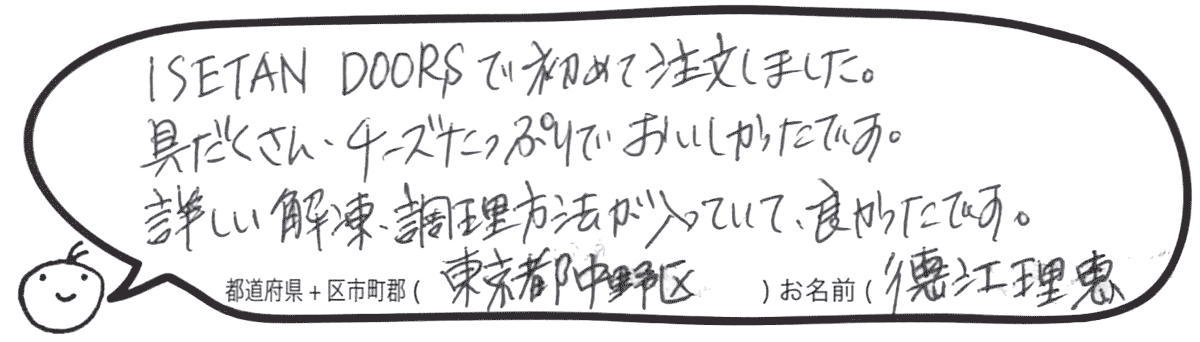 ISETAN DOORSで初めて注文しました。
具だくさん、チーズたっぷりでおいしかったです。
詳しい解凍、調理方法が入っていて、良かったです。
都道府県+区市町郡(東京都中野区)お名前(徳江理恵